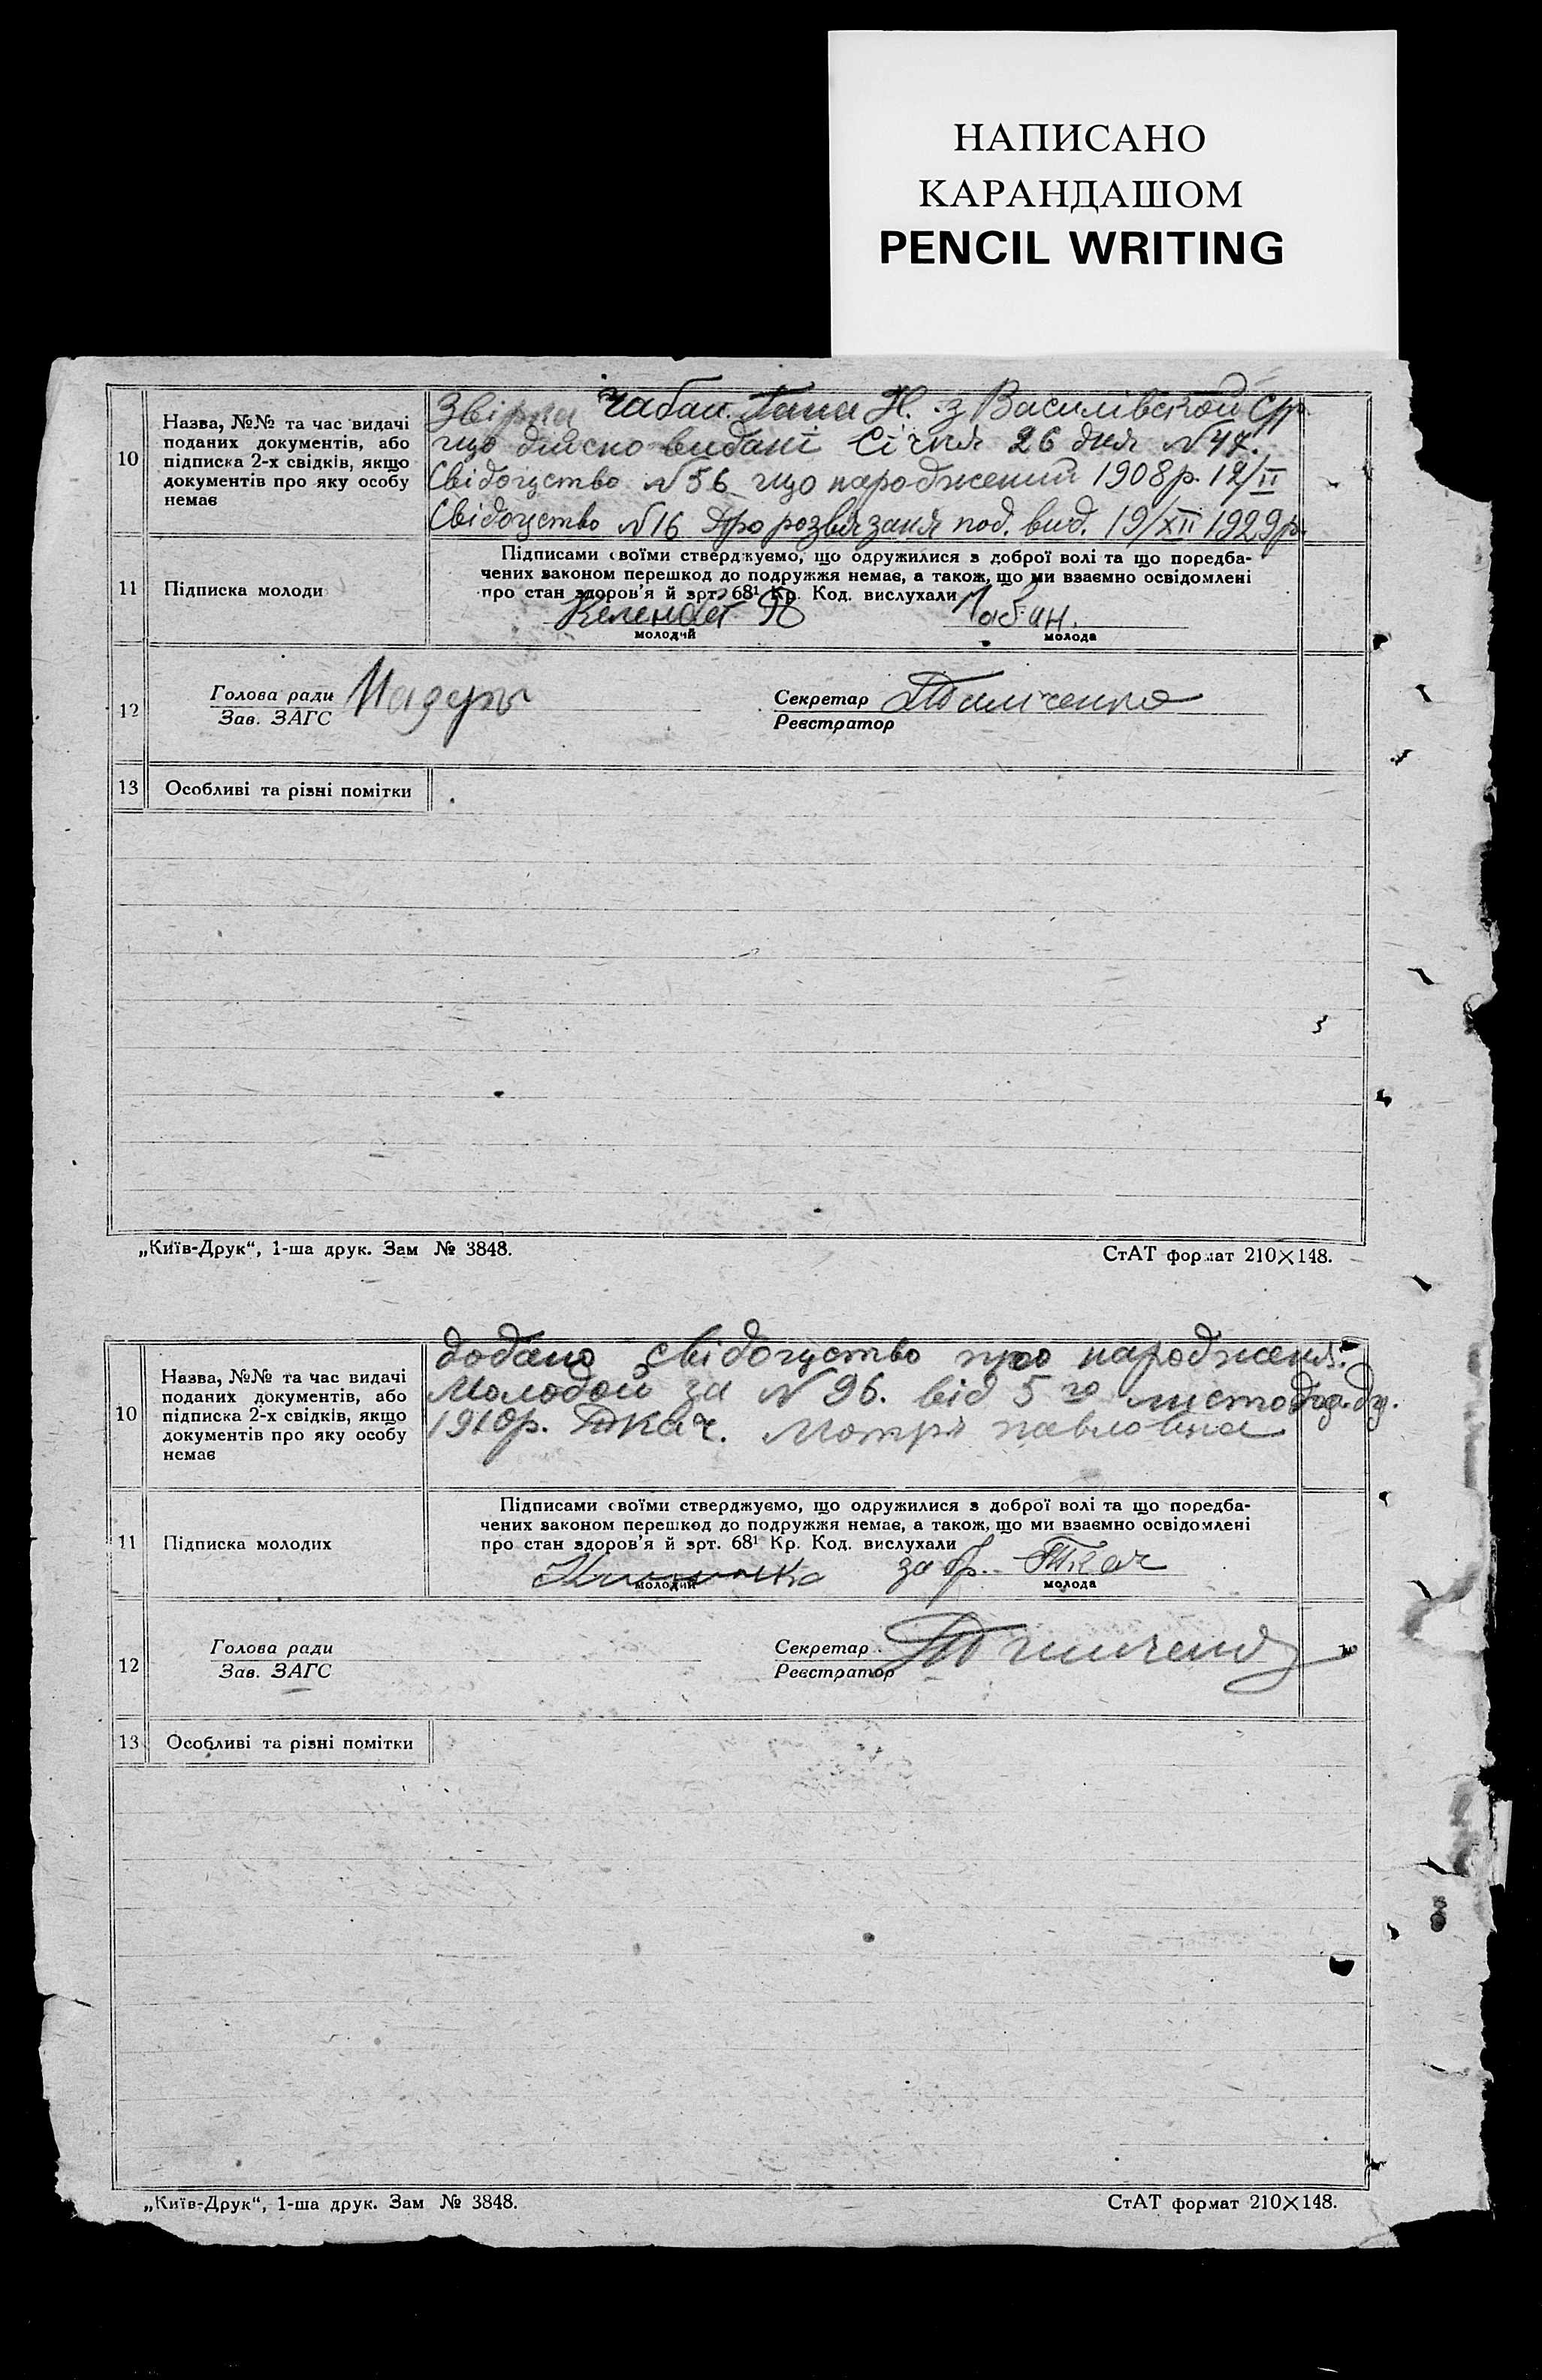 НАПИСАНО
КАРАНДАШОМ
PENCIL WRITING
10
Назва, №№ та час видачі
поданих документів, або
підписка 2-х свідків, якщо
документів про яку особу
немає
чабан Н. з Василівської С/р.
що дійсно видані Січня 26 дня N 47.
Свідоцтво N 56 що народжений 1908 р. 12/II
Свідоцтво N 16 про розвязаня под. вид. 19/XII 1929 р.
11
Підписка молоди
Підписами своїми стверджуємо, що одружилися з доброї волі та що поредба-
чених законом перешкод до подружжя немає, а також, що ми взаємно освідомлені
про стан здоров'я й арт. 68¹ Кр. Код. вислухали
Чабан.
молодий
молода
12
Голова ради
Зав. ЗАГС
Секретар
Реєстратор
13
Особливі та різні помітки
„Київ-Друк“, 1-ша друк. Зам № 3848.
СтАТ формат 210×148.
10
Назва, №№ та час видачі
поданих документів, або
підписка 2-х свідків, якщо
документів про яку особу
немає
додано свідоцтво про народженя.
Молодой за N 96. від 5 го листопада
1910 р. Ткач. Мотря павловна
11
Підписка молодих
Підписами своїми стверджуємо, що одружилися з доброї волі та що поредба-
чених законом перешкод до подружжя немає, а також, що ми взаємно освідомлені
про стан здоров'я й арт. 68¹ Кр. Код. вислухали
Ткач
молодий
молода
12
Голова ради
Зав. ЗАГС
Секретар
Реєстратор
13
Особливі та різні помітки
„Київ-Друк“, 1-ша друк. Зам № 3848.
СтАТ формат 210×148.